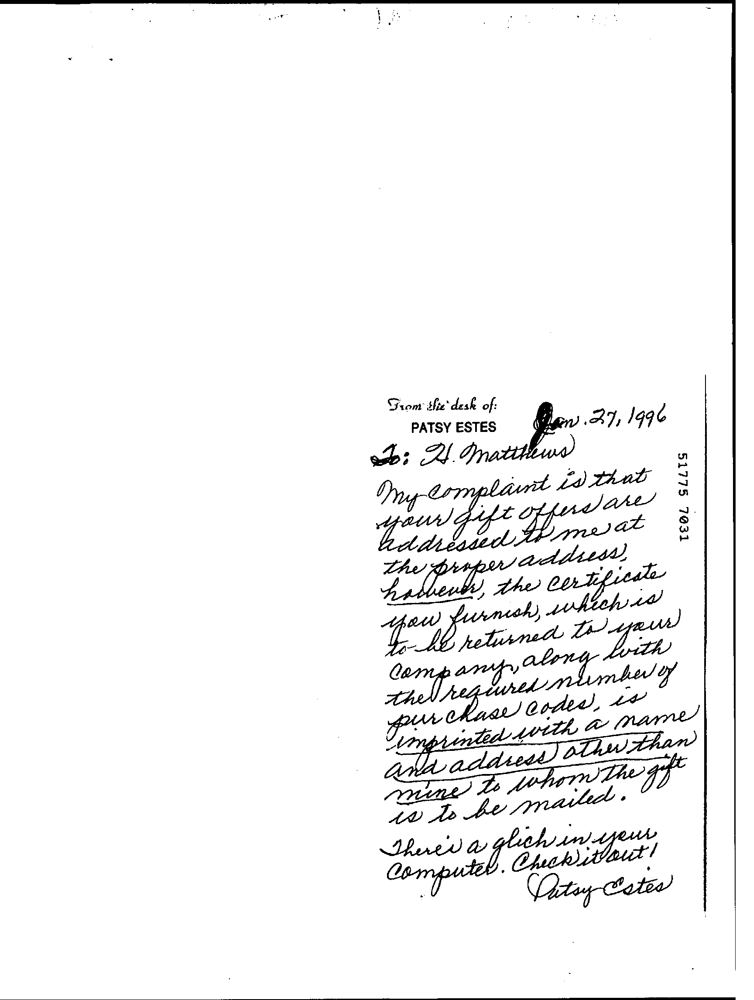 From the desk of:
PATSY ESTES
Jan. 27, 1996
To: H. Matthews
My complaint is that
your gift offers are
addressed to me at
the proper address,
however, the certificate
you furnish, which is
to be returned to your
company, along with
the reqiured number of
purchase codes, is
imprinted with a name
and address other than
mine to whom the gift
is to be mailed.
There's a glich in your
computer. Check it out!
Patsy Estes
51775 7031